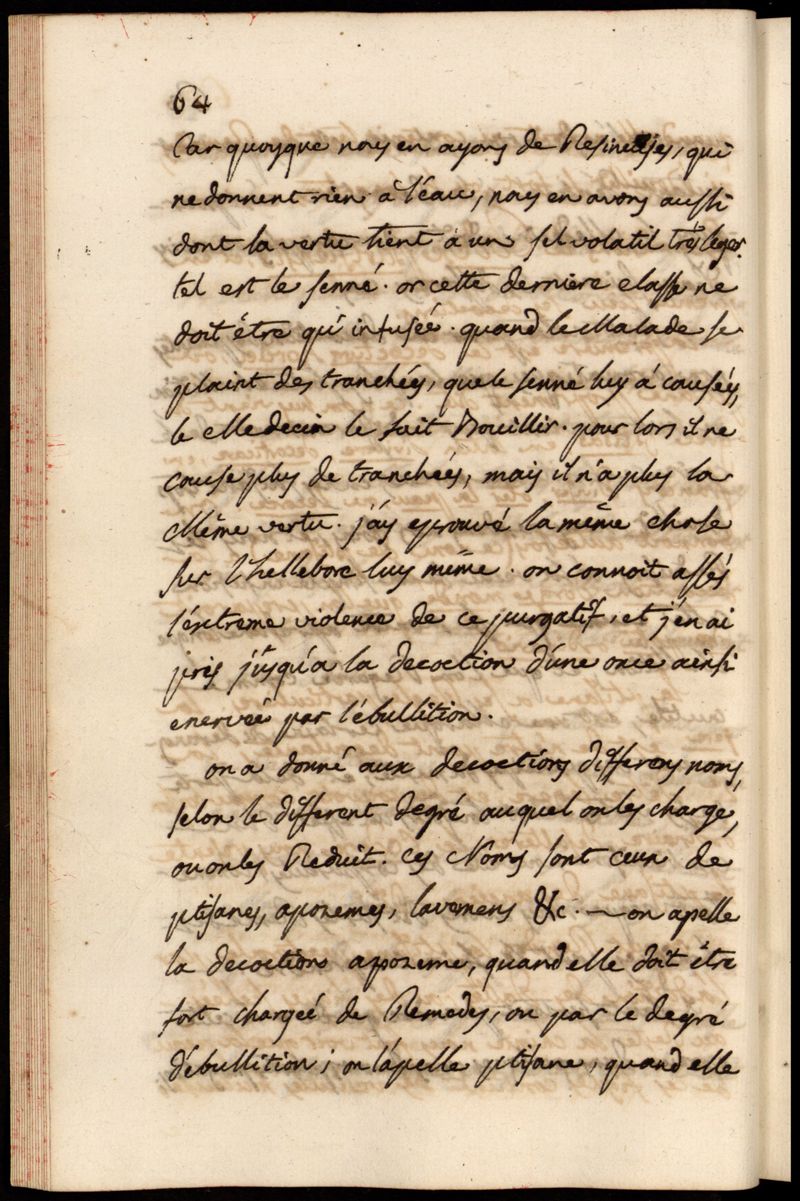 64
Car quoyque nous en ayons de Resineuses, qui
ne donnent rien à l'éau, nous en avons aussi
dont la vertu tient à un sel volatil très leger.
tel est le senné. or cette derniere classe ne
doit être qu'infusée. quand le Malade se
plaint des tranchées, que le senné luy a causées,
le Medecin le fait Bouillir. pour lors il ne
cause plus de tranchées, mais il n'a plus la
Même vertu. j'ay eprouvé la même chose
sur l'hellebore luy même. on connoit assés
l'éxtreme violence de ce purgatif, et j'en ai
pris jusqu'a la decoction d'une once ainsi
enervée par l'ébullition.
on a donné aux decoctions differens noms,
selon le different degré auquel on les charge,
ou on les Reduit. Ces Noms sont ceux de
ptisanes, apozemes, lavemens &c. — on apelle
la decoction apozeme, quand elle doit être
fort chargée de Remedes, ou par le degré
d'ébullition; on l'apelle ptisane, quand elle